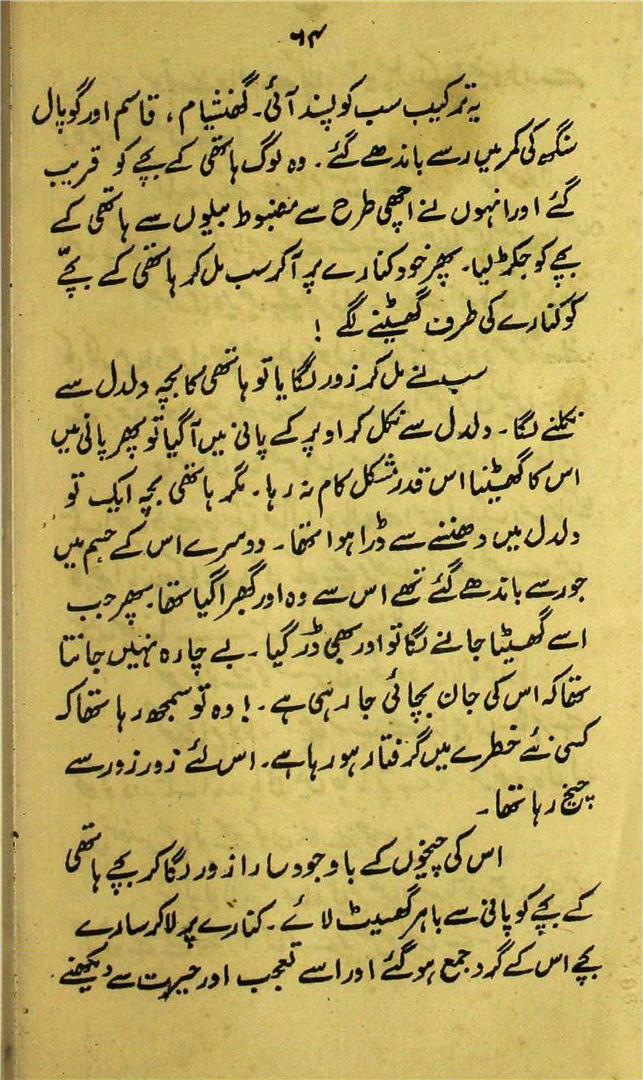 ۶۴
یہ ترکیب سب کو پسند آئی۔ گھنشیام، قاسم اور گوپال
سنگھ کی کمر میں رسے باندھے گئے۔ وہ لوگ ہاتھی کے بچے کو قریب
گئے اور انہوں نے اچھی طرح سے مضبوط بیلوں سے ہاتھی کے
بچے کو جکڑ لیا۔ پھر خود کنارے پر آ کر سب مل کر ہاتھی کے بچّے
کو کنارے کی طرف گھسیٹنے لگے !
سب نے مل کر زور لگایا تو ہاتھی کا بچہ دلدل سے
نکلنے لگا۔ دلدل سے نکل کر اوپر کے پانی میں آگیا تو پھر پانی میں
اس کا گھسیٹنا اس قدر مشکل کام نہ رہا۔ مگر ہاتھی بچہ ایک تو
دلدل میں دھنسنے سے ڈرا ہوا تھا۔ دوسرے اس کے جسم میں
جو رسے باندھے گئے تھے اس سے وہ اور گھبرا گیا تھا۔ پھر جب
اسے گھسیٹا جانے لگا تو اور بھی ڈر گیا۔ بے چارہ نہیں جانتا
تھا کہ اس کی جان بچائی جا رہی ہے۔! وہ تو سمجھ رہا تھا کہ
کسی نئے خطرے میں گرفتار ہو رہا ہے۔ اس لئے زور زور سے
چیخ رہا تھا۔
اس کی چیخوں کے باوجود سارا زور لگا کر بچے ہاتھی
کے بچے کو پانی سے باہر گھسیٹ لائے۔ کنارے پر لا کر سارے
بچے اس کے گرد جمع ہو گئے اور اسے تعجب اور حیرت سے دیکھنے